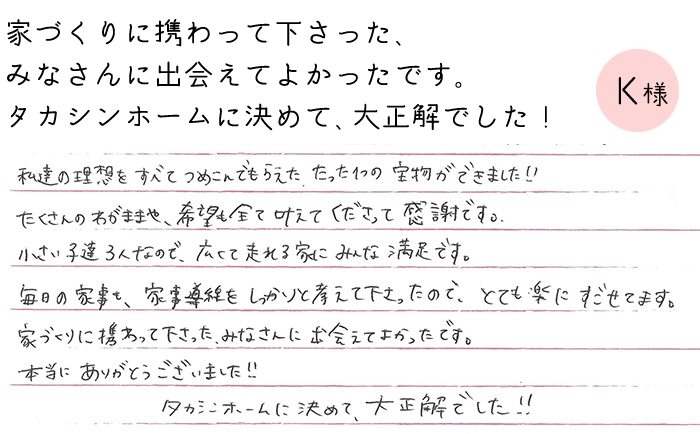 家づくりに携わって下さった、
みなさんに出会えてよかったです。
タカシンホームに決めて、大正解でした！
K様
私達の理想をすべてつめこんでもらえた、たった1つの宝物ができました!!
たくさんのわがままや、希望も全て叶えてくださって感謝です。
小さい子達3人なので、広くて走れる家にみんな満足です。
毎日の家事も、家事導線をしっかりと考えて下さったので、とても楽にすごせてます。
家づくりに携わって下さった、みなさんに出会えてよかったです。
本当にありがとうございました!!
タカシンホームに決めて、大正解でした!!